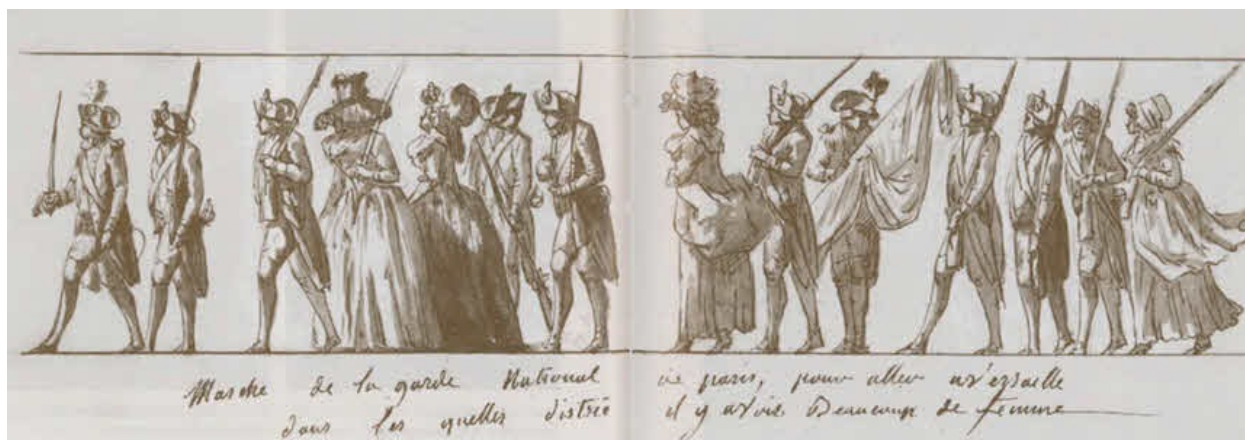 Marche de la garde National de paris, pour aller a v'ersaille
dans les quelles distric il y avoie Beaucoup de femme